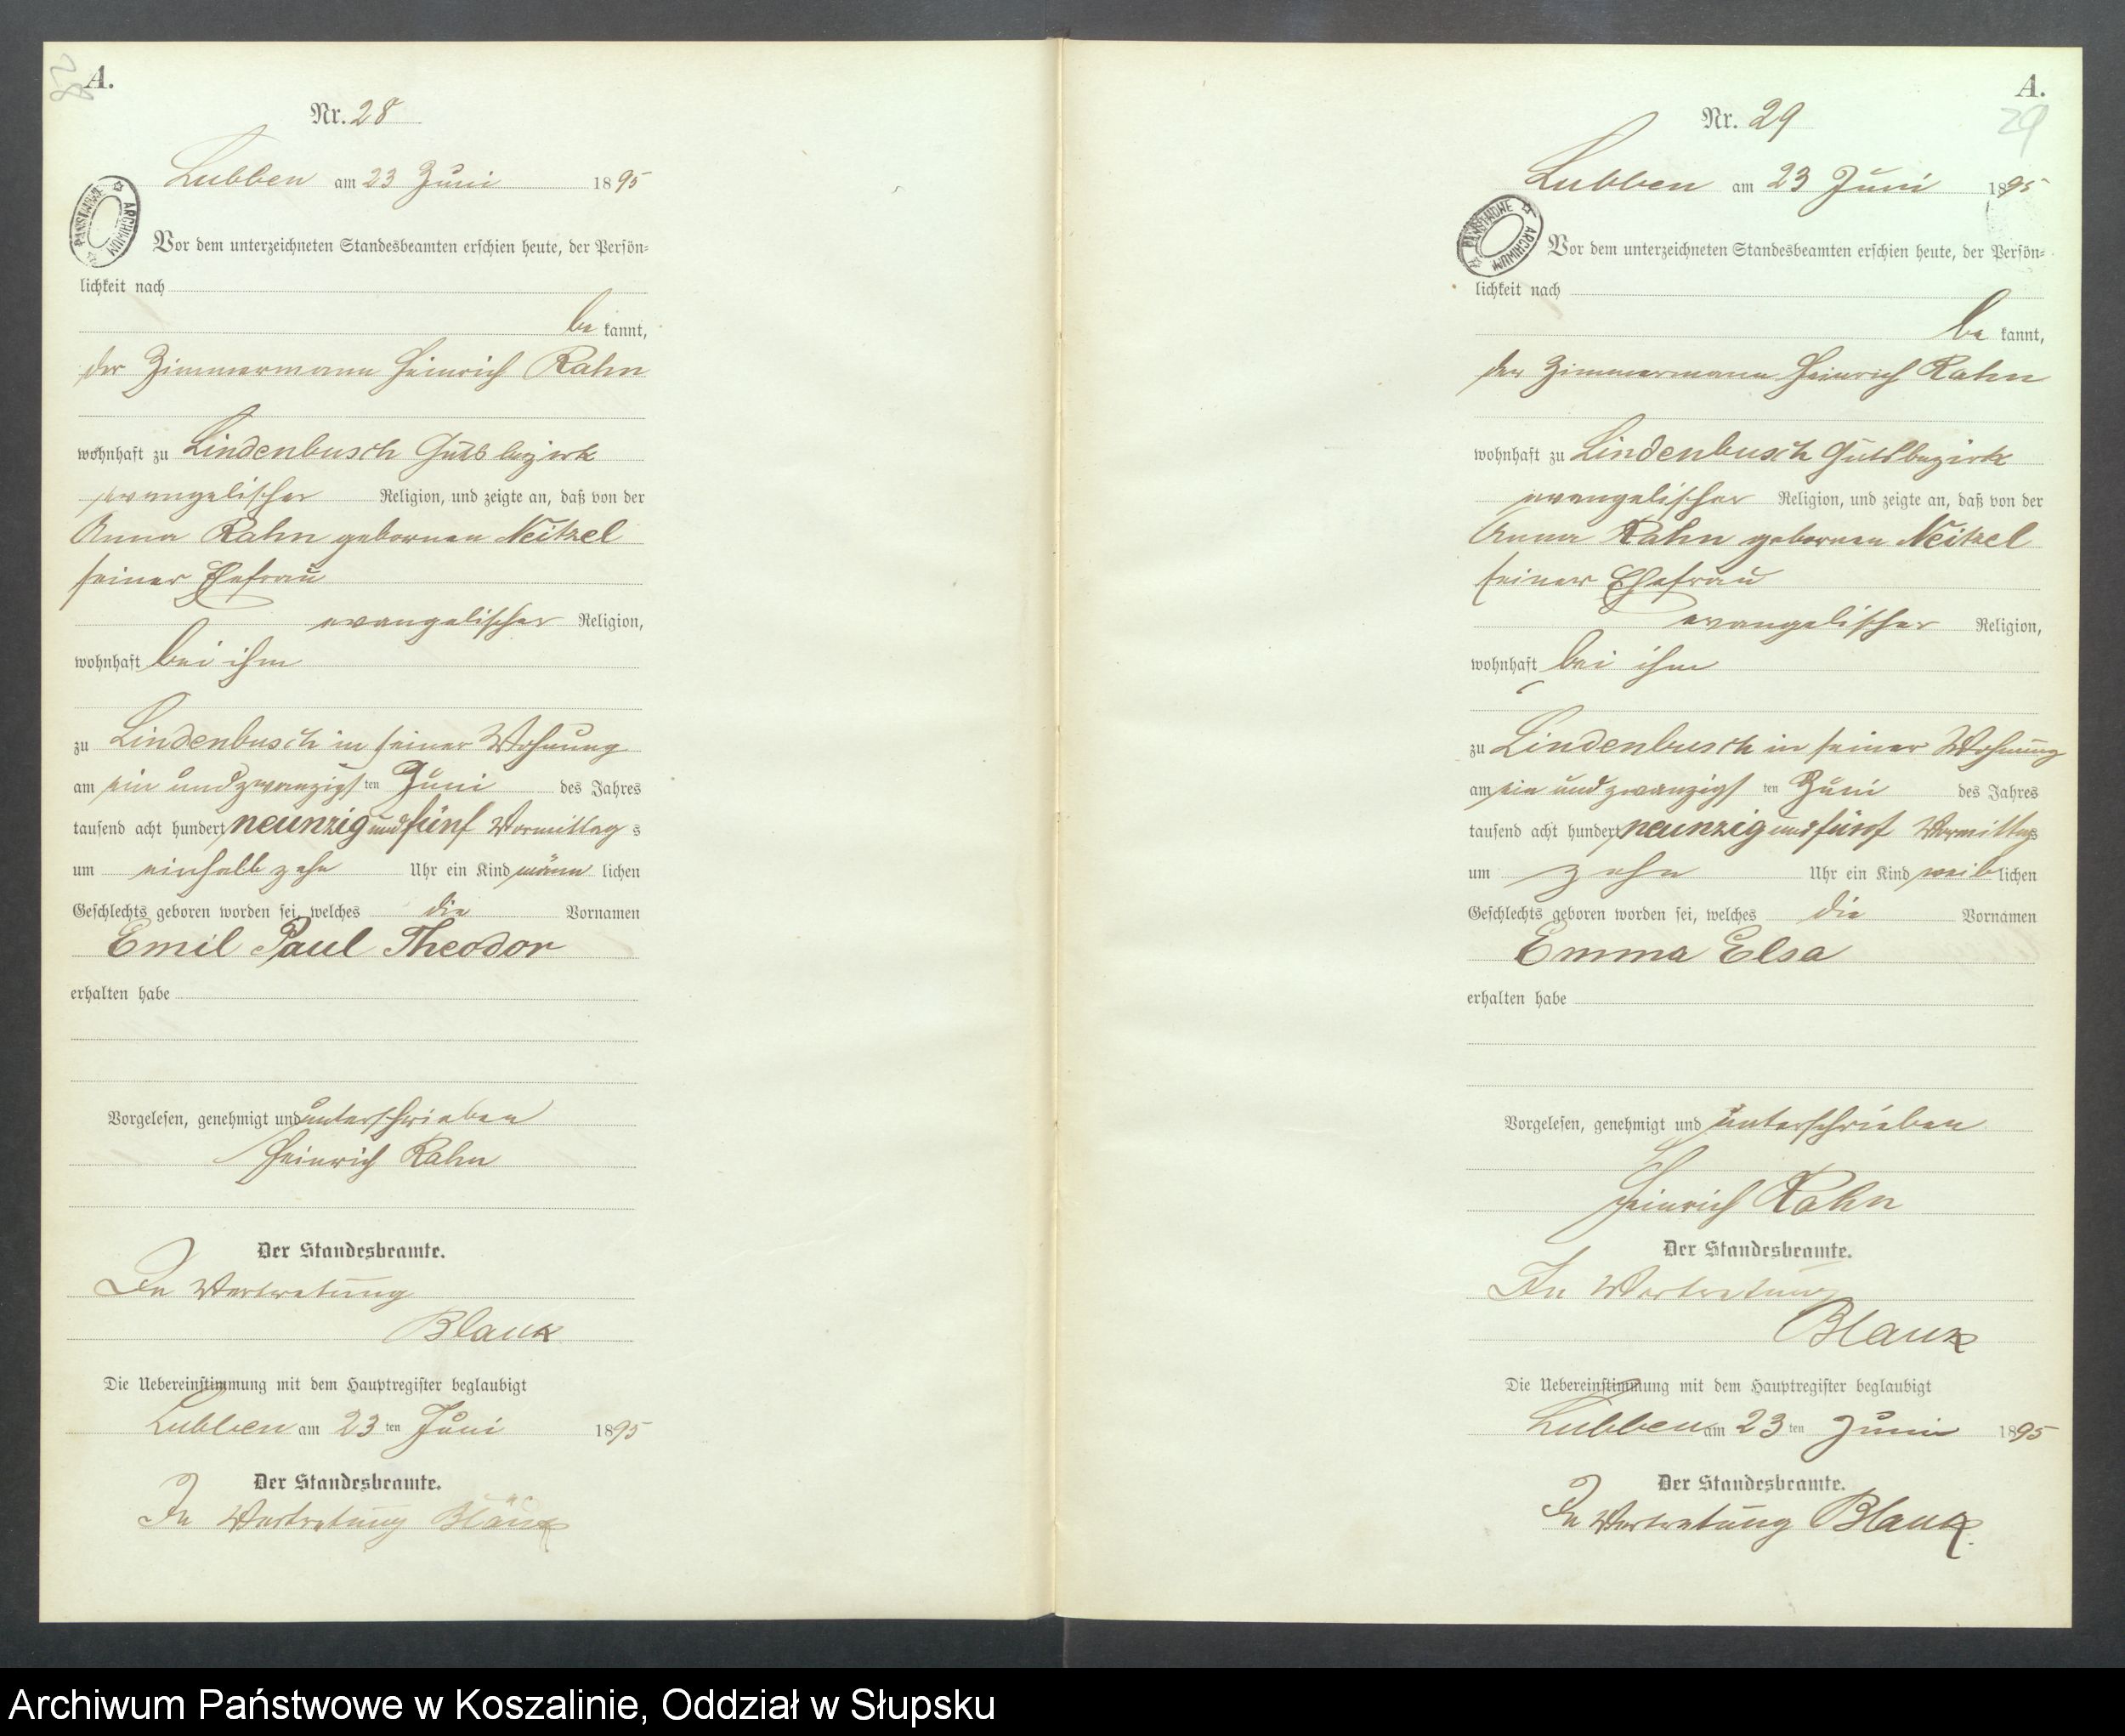 28
A.
Nr. 28
Lubben am 23 Juni 1895
PAŃSTWOWE ARCHIWUM
Vor dem unterzeichneten Standesbeamten erschien heute, der Persön-
lichkeit nach
be kannt,
der Zimmermann Heinrich Rahn
wohnhaft zu Lindenbusch Gutsbezirk
evangelischer Religion, und zeigte an, daß von der
Anna Rahn gebornen Neitzel
seiner Ehefrau
evangelischer Religion,
wohnhaft bei ihm
zu Lindenbusch in seiner Wohnung
am ein und zwanzigsten Juni des Jahres
tausend acht hundert neunzig und fünf Vormittags
um einhalb zehn Uhr ein Kind männlichen
Geschlechts geboren worden sei, welches die Vornamen
Emil Paul Theodor
erhalten habe
Vorgelesen, genehmigt und unterschrieben
Heinrich Rahn
Der Standesbeamte.
In Vertretung
Blank
Die Uebereinstimmung mit dem Hauptregister beglaubigt
Lubben am 23 ten Juni 1895
Der Standesbeamte.
In Vertretung Blank
A.
29
Nr. 29
Lubben am 23 Juni 1895
PAŃSTWOWE ARCHIWUM
Vor dem unterzeichneten Standesbeamten erschien heute, der Persön-
lichkeit nach
be kannt,
der Zimmermann Heinrich Rahn
wohnhaft zu Lindenbusch Gutsbezirk
evangelischer Religion, und zeigte an, daß von der
Anna Rahn gebornen Neitzel
seiner Ehefrau
evangelischer Religion,
wohnhaft bei ihm
zu Lindenbusch in seiner Wohnung
am ein und zwanzigsten Juni des Jahres
tausend acht hundert neunzig und fünf Vormittags
um zehn Uhr ein Kind weiblichen
Geschlechts geboren worden sei, welches die Vornamen
Emma Elsa
erhalten habe
Vorgelesen, genehmigt und unterschrieben
Heinrich Rahn
Der Standesbeamte.
In Vertretung
Blank
Die Uebereinstimmung mit dem Hauptregister beglaubigt
Lubben am 23 ten Juni 1895
Der Standesbeamte.
In Vertretung Blank.
Archiwum Państwowe w Koszalinie, Oddział w Słupsku